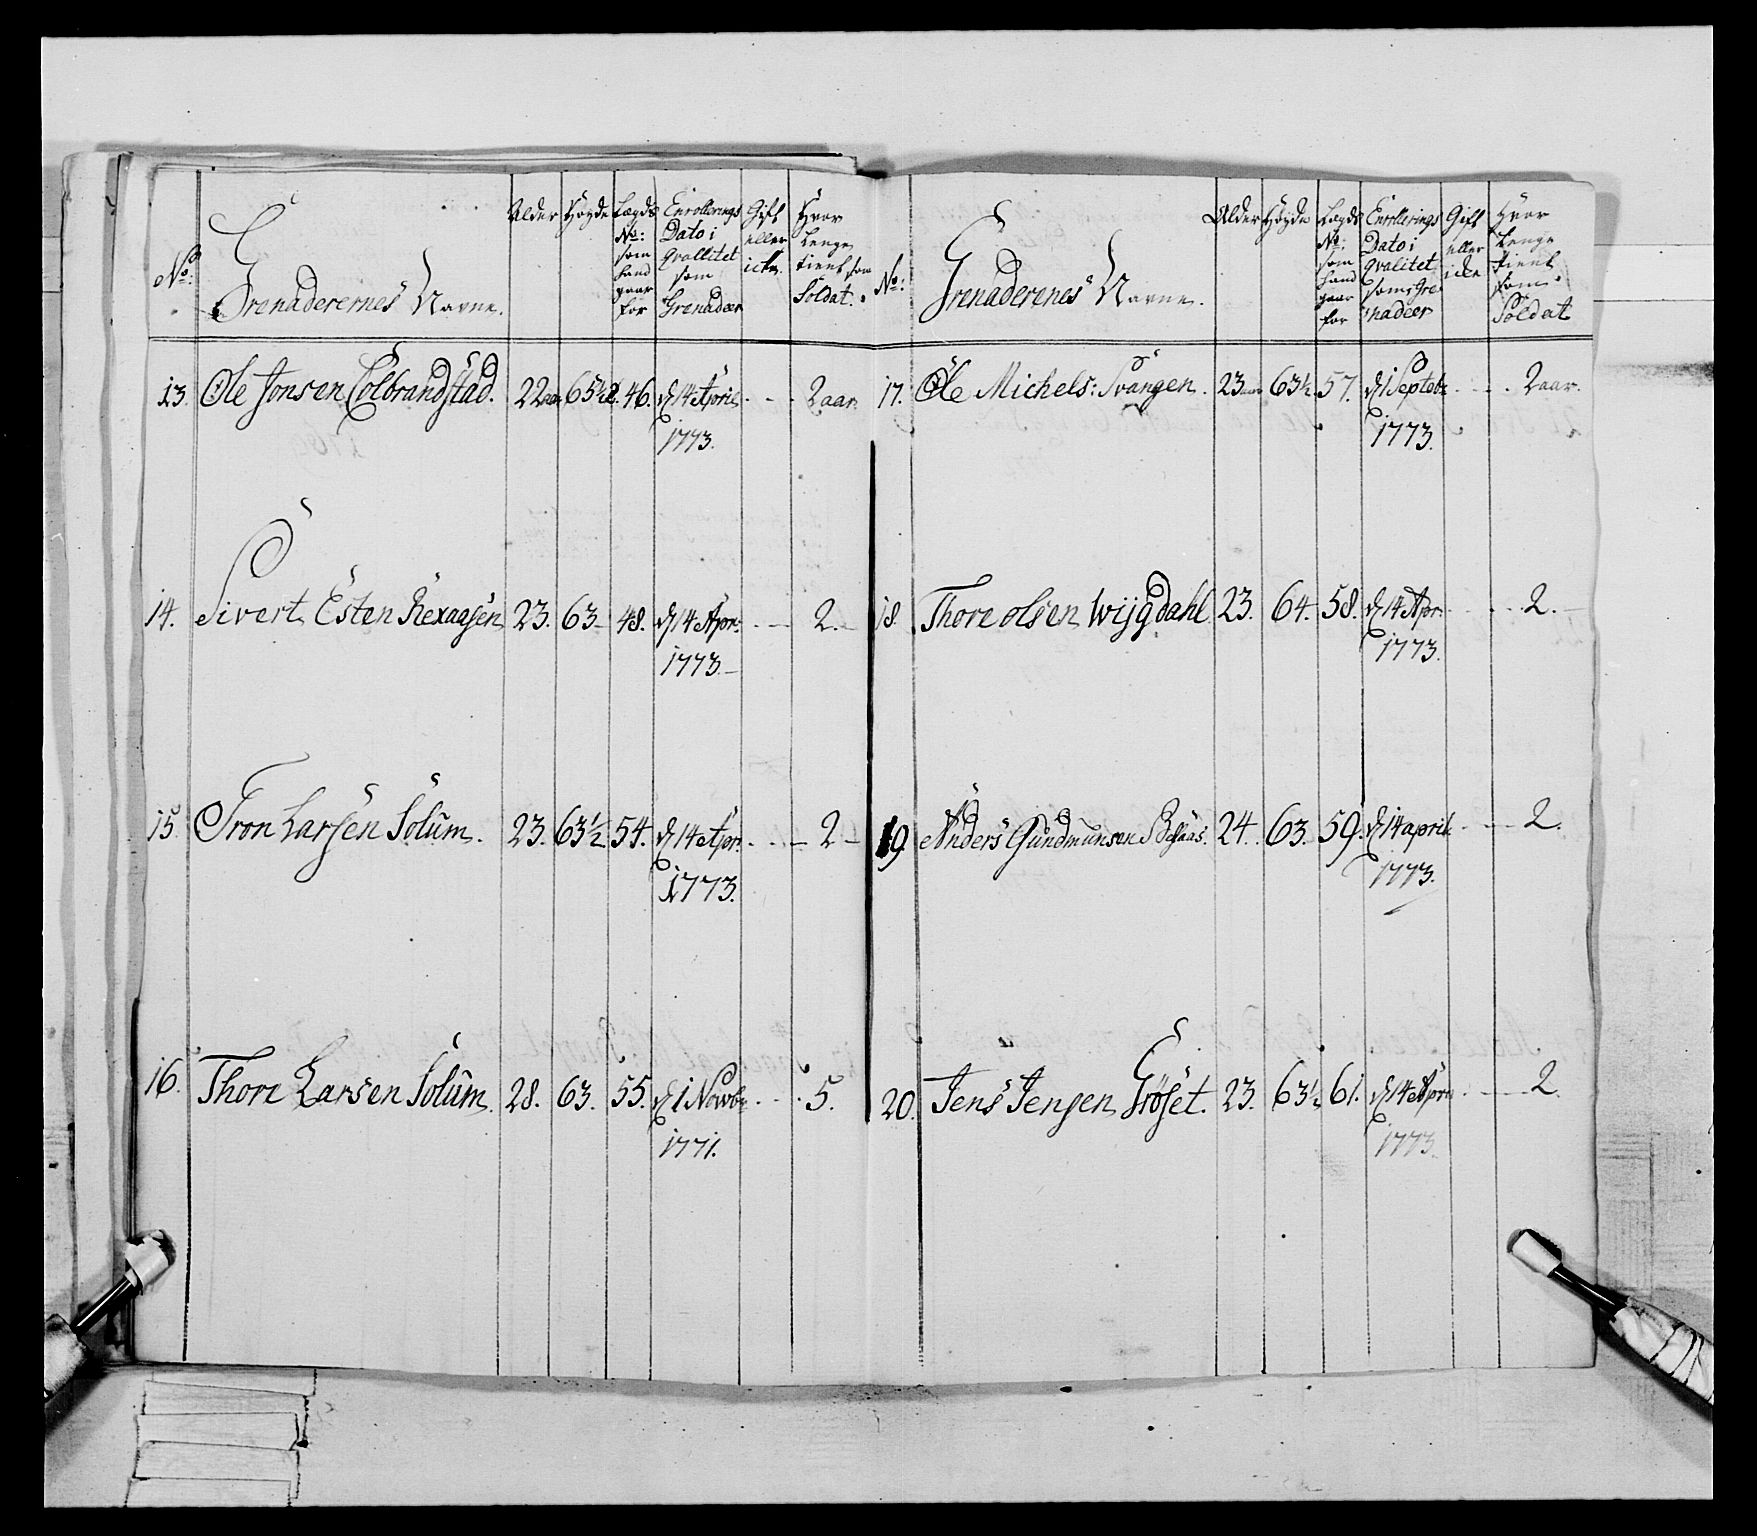 No: Grenaderernes Navne. Alder Høyde Lægds No: som hand gaar for Enrollerings Dato i Qvallitet som Grenadeer Gift eller icke. Hvor Lenge tient som Soldat.
13. Ole Jonsen Colbrandstad. 22 aar 65½ 46. d 14 April - - - 2 aar.
1773.
14. Sivert Esten Rexaasen 23. 63 48. d 14 Apr: - - 2. -
1773. -
15. Tron Larsen Solum. 23. 63½ 54. d 14 Apr: - - - 2 -
1773.
16. Thore Larsen Solum. 28. 63. 55. d 1 Novbr - - - 5.
1771.
No: Grenaderenes Navne. Alder Høyde Lægds No: som hand gaar for Enrollerings Dato i Qvalitet som Grenadeer Gift eller icke Hvor Lenge tient som Soldat
17. Ole Michels: Svangen. 23 aar 63½. 57. d 1 Septebr - - - 2 aar.
1773.
18. Thore olsen Wijgdahl 23. 64. 58. d 14 Apr: - - - 2. -
1773.
19 Anders Gundmunsen 24. 63. 59. d 14 april. - - 2.
1773.
20. Jens Jensen Grøset. 23. 63½ 61. d 14 Apr: - - 2.
1773.